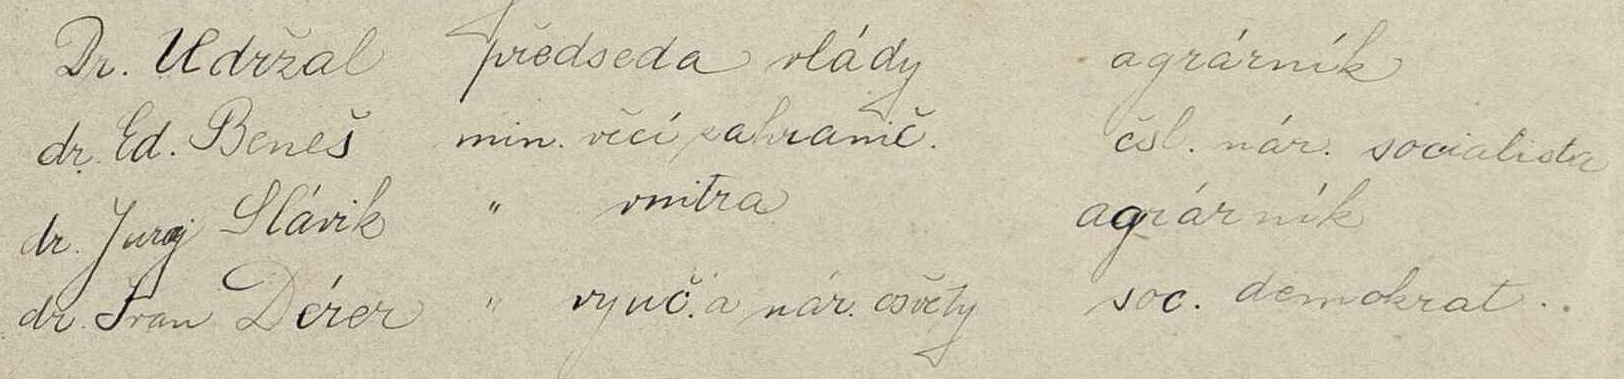 Dr. Udržal předseda vlády agrárník
dr. Ed. Beneš min. věcí zahranič. čsl. nár. socialista
dr. Juraj Slávik " vnitra agrárník
dr. Ivan Dérer " vyuč. a nár. osvěty soc. demokrat..